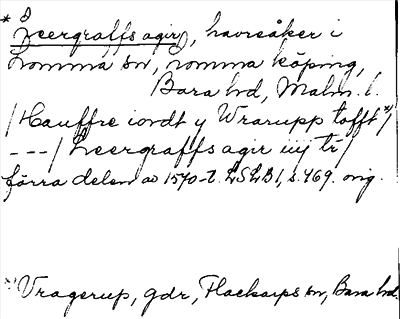 * Leergraffs agir, havreåker i
Lomma sn, Lomma köping,
Bara hd, Malm. l.
/Hauffre iordt y Wrarupp tofft*/
---/Leergraffs agir iiij tr/
förra delen av 1570-t. LSLB1, s. 469. orig.
*) Vragerup, gdr, Flackarps sn, Bara hd.